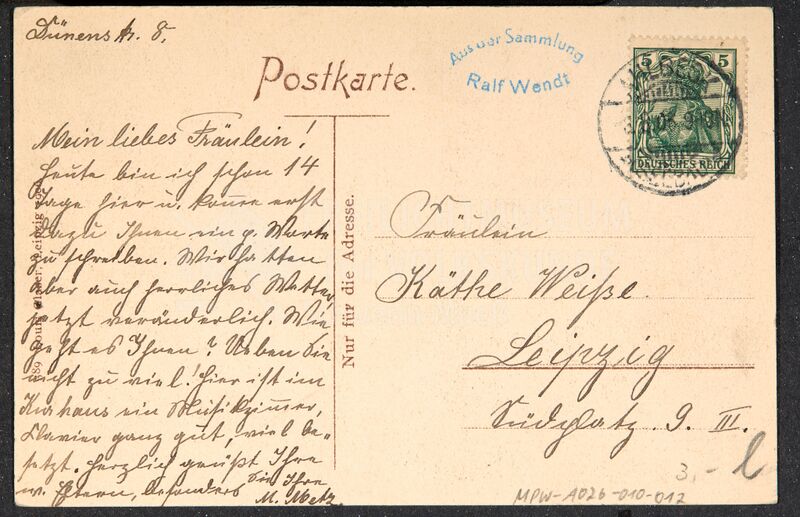 Dünenstr. 8.
Postkarte.
Aus der Sammlung
Ralf Wendt
5 5
DEUTSCHES REICH
Mein liebes Fräulein!
Heute bin ich schon 14
Tage hier u. komme erst
dazu Ihnen ein p. Worte
zu schreiben. Wir hatten
aber auch herrliches Wetter,
jetzt veränderlich. Wie
geht es Ihnen? Ueben Sie
nicht zu viel! Hier ist im
Kurhaus ein Musikzimmer,
Klavier ganz gut, viel be-
setzt. Herzlich grüßt Ihre
w. Eltern, besonders Sie Ihre
M. Metz.
Nur für die Adresse.
Leipzig
Fräulein
Käthe Weiße.
Leipzig
Südplatz 9. III.
3,-
MPW-A026-010-012